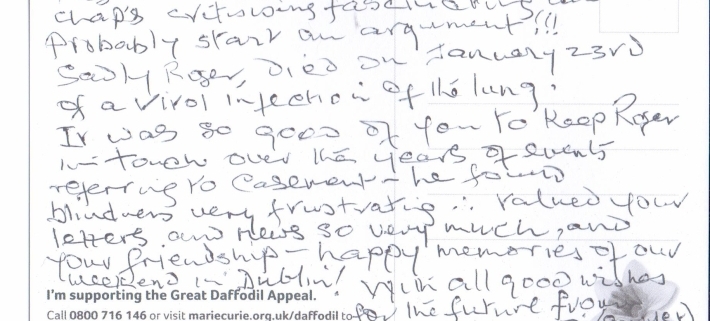 chap's critiswing
Probably start an argument!!!
Sadly Roger, Died on January 23rd
of a virol infection of the lung.
It was so good of you to keep Roger
in-touch over the years of events
referring to Casement - he found
blindness very frustrating ∴ valued your
letters and news so very much, and
your friendship - happy memories of our
weekend in Dublin! With all good wishes
I'm supporting the Great Daffodil Appeal.
for the future from
Call 0800 716 146 or visit mariecurie.org.uk/daffodil to